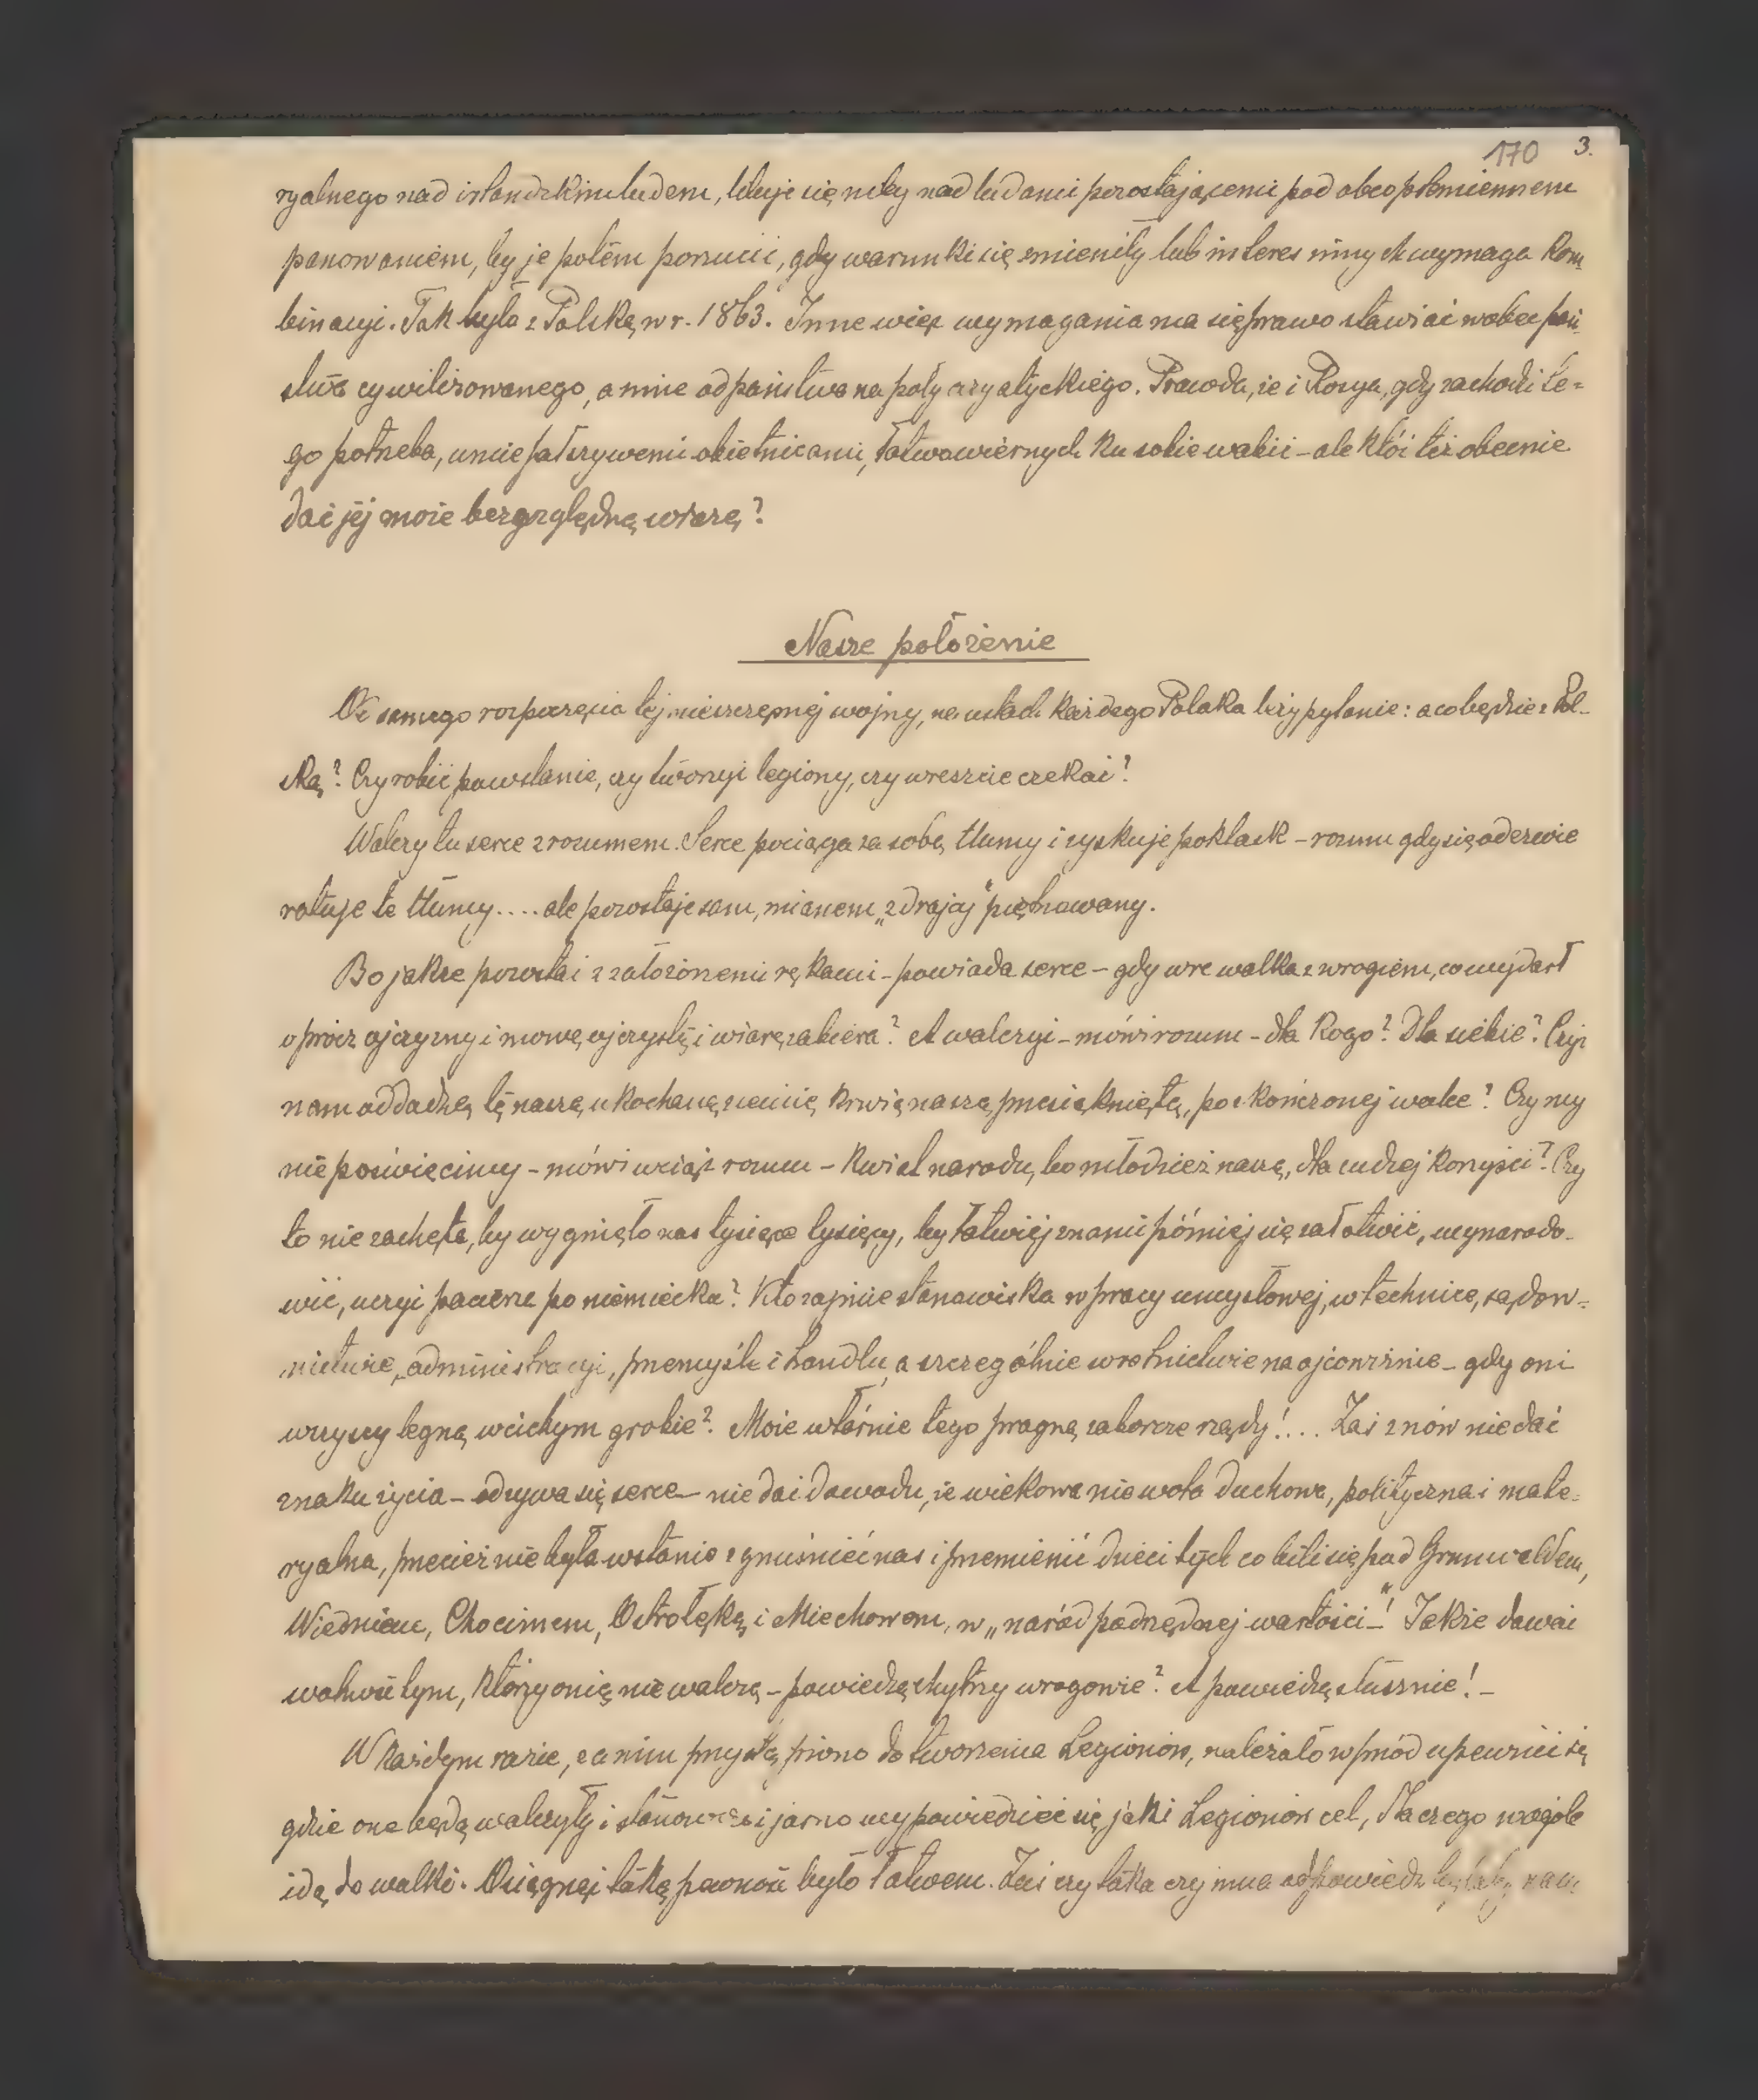 170 3.
ryalnego nad irlandzkim ludem, lituje się niby nad ludami pozostającemi pod obcoplemiennem
panowaniem, by je potém porzucić, gdy warunki się zmieniły lub interes innych wymaga kom-
binacyi. Tak było z Polską w r. 1863. Inne więc wymagania ma się prawo stawiać wobec pań-
stwa cywilizowanego, a inne od państwa na poły azyatyckiego. Prawda, że i Rosya, gdy zachodzi te-
go potrzeba, umie fałszywemi obietnicami, łatwowiernych ku sobie wabić – ale któż też obecnie
dać jéj może bezwzględną wiarę?
Nasze położenie
Od samego rozpoczęcia téj nieszczęsnej wojny, na ustach każdego Polaka leży pytanie: a co będzie z Pol-
ską? Czy robić powstanie, czy tworzyć legiony, czy wreszcie czekać?
Walczy tu serce z rozumem. Serce pociąga za sobą tłumy i zyskuje poklask – rozum gdy się oderwie
ratuje te tłumy.... ale pozostaje sam, mianem „zdrajcy" piętnowany.
Bo jakże pozostać z założonemi rękami – powiada serce – gdy wre walka z wrogiem, co wydarł
oprócz ojczyzny i mowę ojczystą i wiarę zabiera? A walczyć – mówi rozum – dla kogo? Dla siebie? Czyż
nam oddadzą tę naszą ukochaną ziemię krwią naszą przesiąkniętą, po skończonej walce? Czy my
nie poświęcimy – mówi wciąż rozum – kwiat narodu, bo młodzież naszą, dla cudzej korzyści? Czy
to nie zachęta, by wyginęło nas tysiące tysięcy, by łatwiéj z nami później się załatwić, wynarodo-
wić, uczyć pacierze po niemiecku? Kto zajmie stanowiska w pracy umysłowej, w technice, sądow-
nictwie, administracyi, przemyśle i handlu, a szczególnie w rolnictwie na ojcowiźnie – gdy oni
wszyscy legną w cichym grobie? Może właśnie tego pragną zaborcze rządy!.... Zaś znów nie dać
znaku życia – odzywa się serce – nie dać dowodu, że wiekowa niewola duchowa, polityczna i mate-
ryalna, przecież nie była wstanie zgnuśnić nas i przemienić dzieci tych co bili się pod Grunwaldem,
Wiedniem, Chocimem, Ostrołęką i Miechowem, w „naród podrzędnej wartości –"! Jakże dawać
wolność tym, którzy o nią nie walczą – powiedzą chytrzy wrogowie? A powiedzą słusznie! –
W każdym razie, zanim przystąpiono do tworzenia Legionów, należało wprzód upewnić się
gdzie one będą walczyły i stanowczo i jasno wypowiedzieć się jaki Legionów cel, dlaczego wogóle
idą do walki. Osiągnąć taką pewność było łatwem. Zaś czy taka czy inna odpowiedź byłaby nam